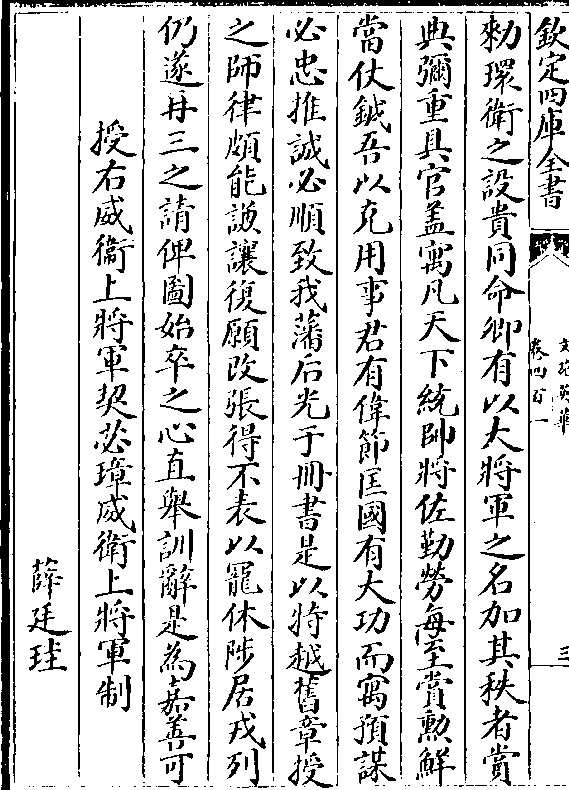 欽定四庫全書
文苑英華
卷四百一
三
勑環衛之設貴同命卿有以大將軍之名加其秩者賞
典彌重具官盖寓凡天下統帥將佐勤勞每至賞勲鮮
當仗鉞吾以充用事君有偉節匡國有大功而寓預謀
必忠推誠必順致我藩后光于冊書是以特越舊章授
之師律頗能謙讓復願改張得不表以寵休陟居戎列
仍遂再三之請俾圖始卒之心直舉訓辭是為嘉善可
授右威衛上將軍契苾璋威衛上將軍制
薛廷珪